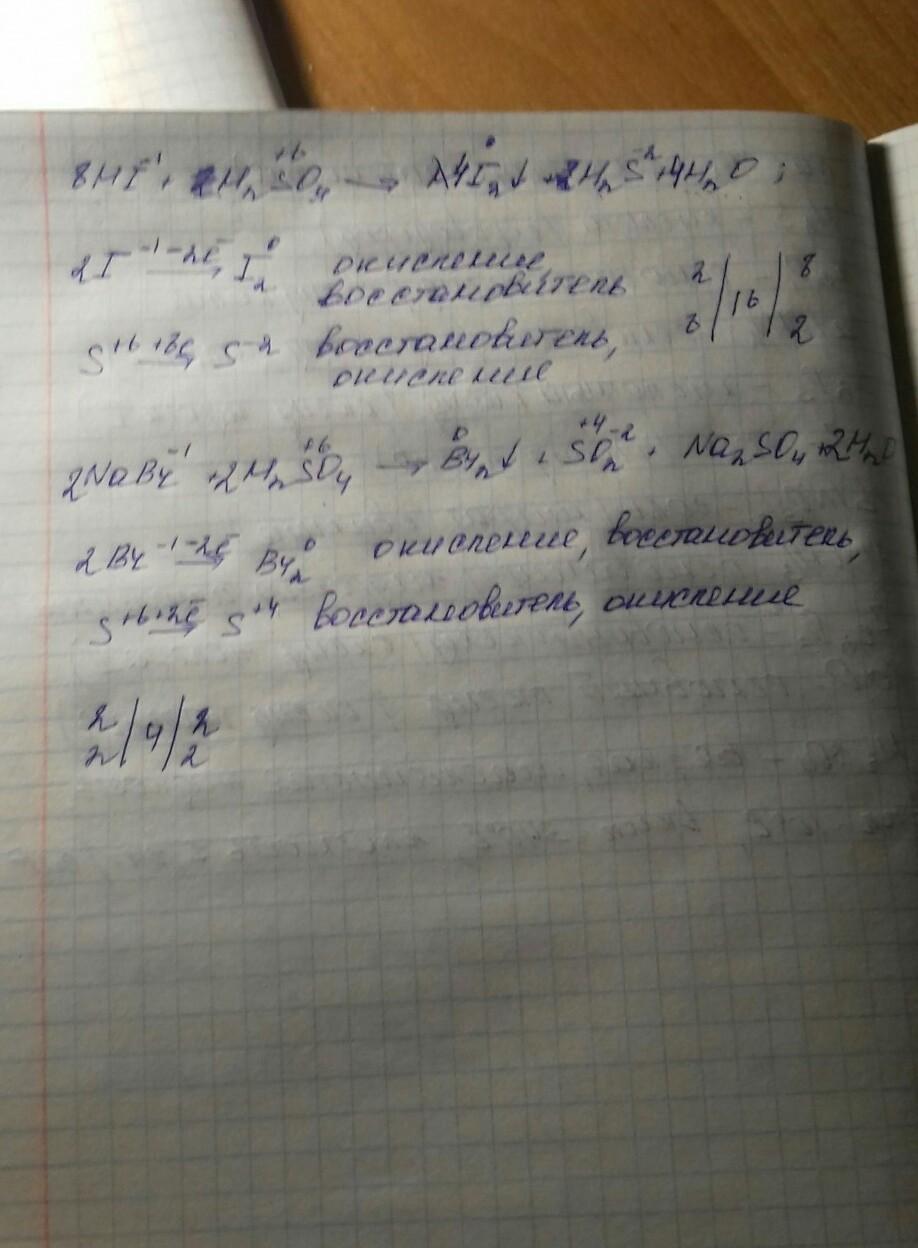 8HI⁻¹ + H₂S⁺⁶O₄ → 4I₂⁰↓ + H₂S⁻² + 4H₂O ;
2I⁻¹ -2ē → I₂⁰ окисление,
восстановитель
2 | 16 | 8
8 | 16 | 2
S⁺⁶ +8ē → S⁻² восстановитель,
окисление
2NaBr⁻¹ + 2H₂S⁺⁶O₄ → Br₂⁰↓ + S⁺⁴O₂⁻² + Na₂SO₄ + 2H₂O
2Br⁻¹ -2ē → Br₂⁰ окисление, восстановитель,
S⁺⁶ +2ē → S⁺⁴ восстановитель, окисление
2 | 4 | 2
2 | 4 | 2